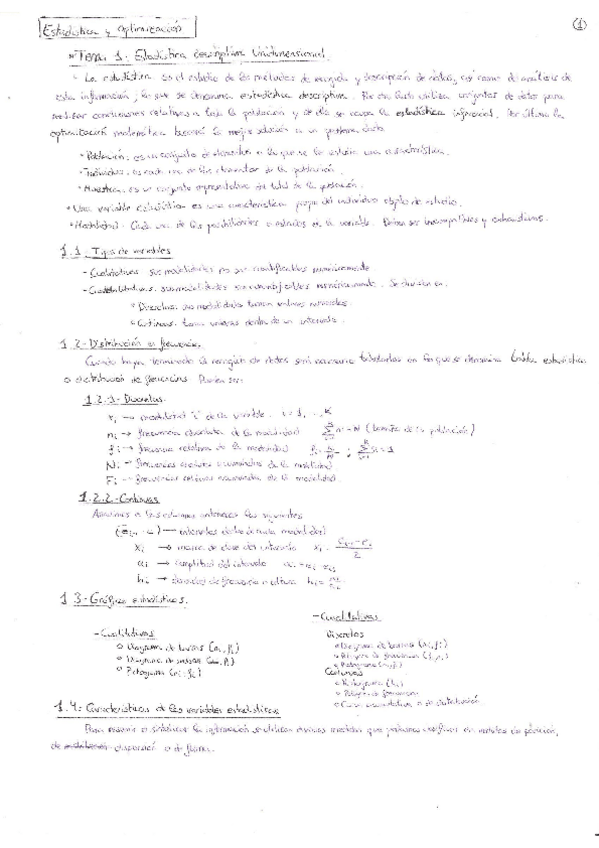 Estadística y Optimización
1
* Tema 1: Estadística descriptiva Unidimensional.
· La estadística es el estudio de los métodos de recogida y descripción de datos, así como del análisis de
esta información, lo que se denomina estadística descriptiva. Por otro lado utiliza conjuntos de datos para
realizar conclusiones relativas a toda la población y de ello se ocupa la estadística inferencial. Por último la
optimización matemática buscará la mejor solución a un problema dado.
· Población: es un conjunto de elementos a los que se les estudia una característica.
· Individuo: es cada uno de los elementos de la población.
· Muestra: es un conjunto representativo del total de la población.
· Una variable estadística es una característica propia del individuo objeto de estudio.
· Modalidad: Cada una de las posibilidades o estados de la variable. Deben ser incompatibles y exhaustivas.
1.1- Tipos de variables
- Cualitativas: sus modalidades no son cuantificables numéricamente
- Cuantitativas: sus modalidades son cuantificables numéricamente. Se dividen en:
° Discretas: sus modalidades toman valores
° Continuas: toma valores dentro de un intervalo.
1.2- Distribución de frecuencias
Cuando haya terminado la recogida de datos será necesario tabularlos en lo que se denomina tabla estadística
o distribución de frecuencias. Pueden ser:
1.2.1- Discretas
xi → modalidad "i" de la variable. i = 1, ..., K
ni → frecuencia absoluta de la modalidad Σ ni = N (tamaño de la población)
fi → frecuencia relativa de la modalidad fi = ni/N ; Σ fi = 1
Ni → frecuencia absoluta acumulada de la modalidad
Fi → frecuencia relativa acumulada de la modalidad.
1.2.2- Continuas
a las columnas anteriores las siguientes
→ intervalos de cada modalidad
xi → marca de clase del intervalo
ai → amplitud del intervalo
hi → densidad de frecuencia o altura hi =
1.3- Gráficos estadísticos.
- Cualitativas
° Diagrama de barras (ni, fi)
° Diagrama de sectores
° Pictograma (ni, fi)
- Cuantitativas
Discretas
° Diagrama de barras (ni, fi)
° Polígono de frecuencias
° Pictograma
Continuas
° Histograma (hi)
° Polígono de frecuencias
° Curva acumulativa o de distribución
1.4: Características de las variables estadísticas
Para resumir o sintetizar la información se utilizan diversas medidas que podemos clasificar en medidas de posición,
de dispersión o de forma.